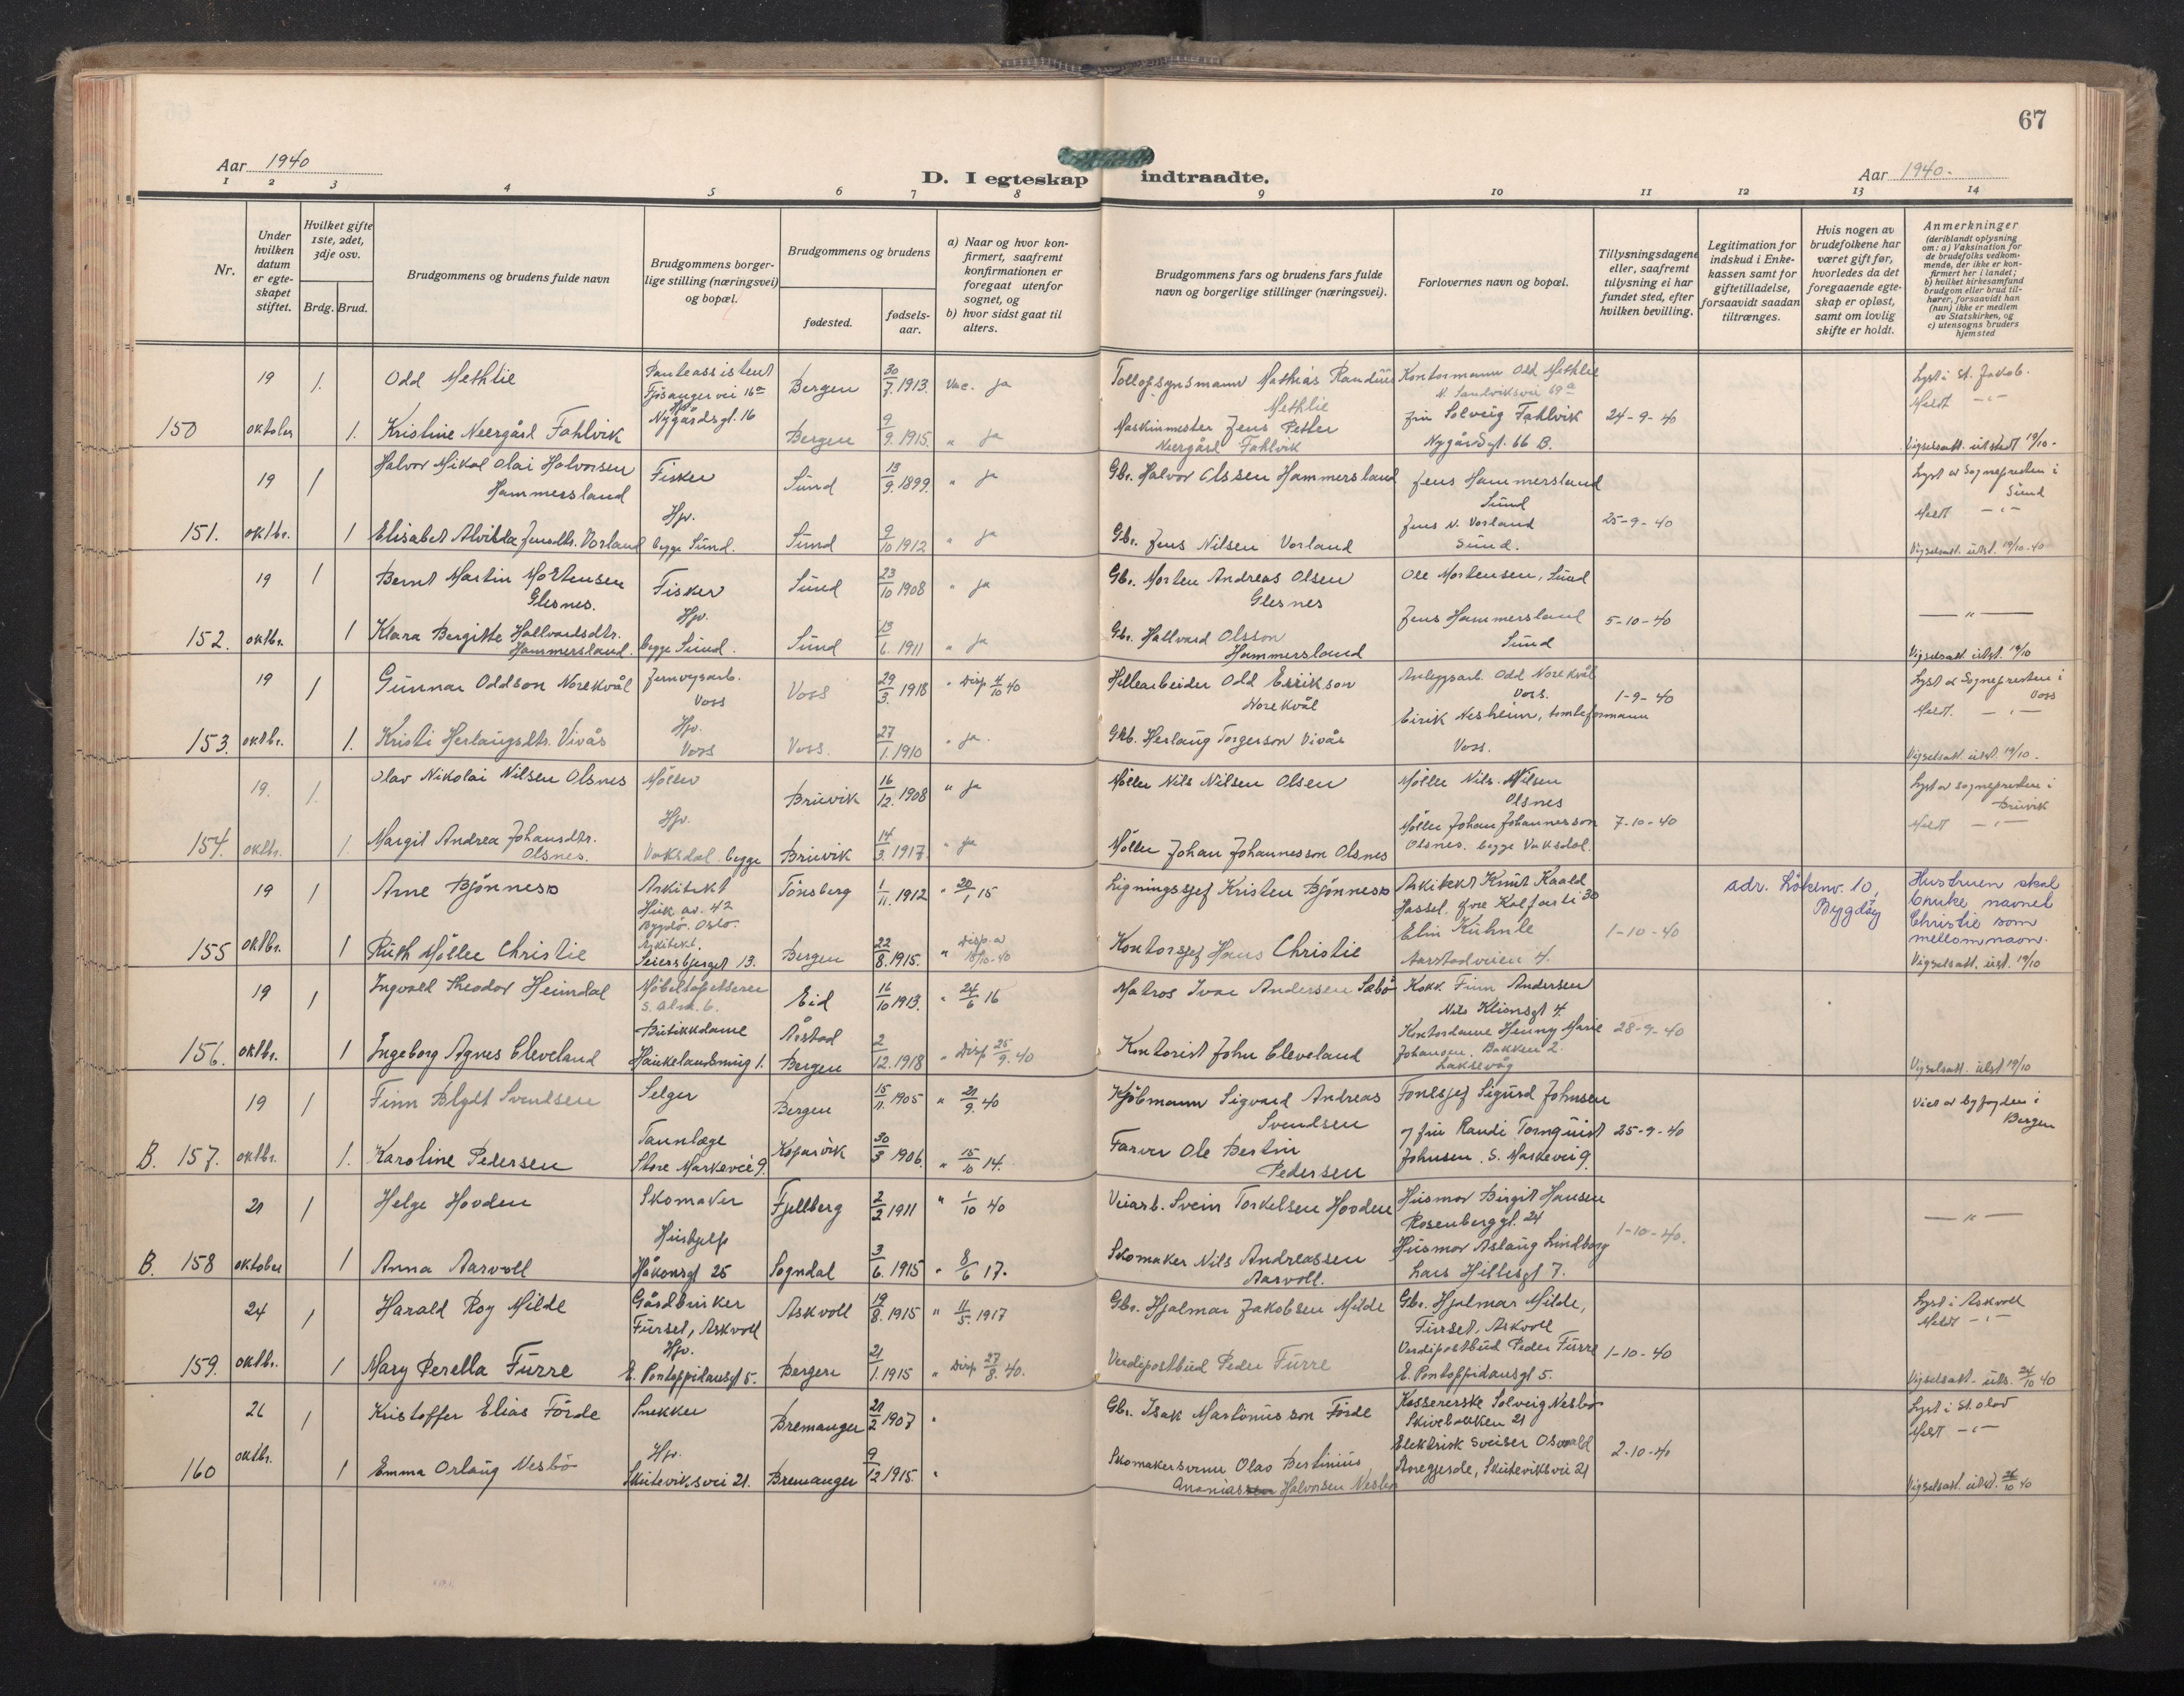 67
Aar 1940
D. I egteskap indtraadte.
Aar 1940.
1 2 3 4 5 6 7 8 9 10 11 12 13 14
Nr.
Under hvilken datum er egteskapet stiftet.
Hvilket gifte 1ste, 2det, 3dje osv.
Brdg. Brud.
Brudgommens og brudens fulde navn
Brudgommens borgerlige stilling (næringsvei) og bopæl.
Brudgommens og brudens
fødested.
fødselsaar.
a) Naar og hvor konfirmert, saafremt konfirmationen er foregaat utenfor sognet, og
b) hvor sidst gaat til alters.
Brudgommens fars og brudens fars fulde navn og borgerlige stillinger (næringsvei).
Forlovernes navn og bopæl.
Tillysningsdagene eller, saafremt tillysning ei har fundet sted, efter hvilken bevilling.
Legitimation for indskud i Enkekassen samt for giftetilladelse, forsaavidt saadan tiltrænges.
Hvis nogen av brudefolkene har været gift før, hvorledes da det foregaaende egteskap er opløst, samt om lovlig skifte er holdt.
Anmerkninger
(deriblandt oplysning om: a) Vaksination for de brudefolks vedkommende, der ikke er konfirmert her i landet; b) hvilket kirkesamfund brudgom eller brud tilhører, forsaavidt han (hun) ikke er medlem av Statskirken, og c) utensogns bruders hjemsted
19 1. Odd Methlie Panteassistent Fjøsangervei 16a Bergen 30/7. 1913. Vac. ja Mathias Randius Methlie Kontormann Odd Methlie N. Sandviksvei 69a Lyst i St. Jakob.
Meldt -"-
150 oktober 1. Kristine Neergård Fahlvik Hjv. Nygårdsgt. 16 Bergen 9/9. 1915. " ja Maskinmester Jens Petter Neergård Fahlvik fru Solveig Fahlvik Nygårdsgt. 66 B. 24-9-40 Vigselsatt. utstedt 19/10-
19 1 Halvor Mikal Olai Halvorsen Hammersland Fisker Sund 13/9. 1899. " ja Gbr. Halvor Olssen Hammersland Jens Hammersland Sund Lyst av Sognepresten i Sund
Meldt -"-
151. oktbr. 1 Elisabet Alvilda Jensdtr. Vorland Hjv. begge Sund. Sund 9/10 1912 " ja Gbr. Jens Nilsen Vorland Jens N. Vorland Sund. 25-9-40 Vigselsatt. utst. 19/10-40
19 1 Bernt Martin Mortensen Glesnes. Fisker Sund 23/10 1908 " ja Gbr. Morten Andreas Olsen Glesnes Ole Mortensen, Sund — " —
152. oktbr. 1 Klara Bergitte Hallvardsdtr. Hammersland. Hjv. begge Sund. Sund 13/6. 1911 " ja Gbr. Hallvard Olsson Hammersland Jens Hammersland Sund 5-10-40 Vigselsatt. utst. 19/10
19 1 Gunnar Oddson Norekvål Jernvegsarb. Voss Voss 29/3. 1918 " Disp 4/10 40 Hellearbeider Odd Eirikson Norekvål Anleggsarb. Odd Norekvål Voss. 1-9-40 Lyst av Sognepresten i Voss
Meldt. -"-
153. oktbr. 1. Kristi Herlaugsdtr. Vivås Hjv. Voss Voss. 27/1. 1910 " ja. Gbr. Herlaug Torgerson Vivås Eirik Nesheim, tomteformann Voss. Vigselsatt. utst. 19/10.
19. 1. Olav Nikolai Nilsen Olsnes Møller Bruvik 16/12. 1908 " ja Møller Nils Nilsen Olsen Møller Nils Nilsen Olsnes Lyst av sognepresten i Bruvik
Meldt -"-
154. oktbr. 1. Margit Andrea Johansdtr. Olsnes. Hjv. Vaksdal. begge Bruvik 14/3. 1917. " ja Møller Johan Johannesson Olsnes Møller Johan Johannesson Olsnes. begge Vaksdal. 7-10-40
19 1 Arne Bjönness Arkitekt Huk av. 42 Bygdö. Oslo. Tönsberg 1/11. 1912 " 20/1 15 Ligningssjef Kristen Bjönness Arkitekt Knut Kaald Hassel. Øvre Kalfarli 30 adr. Lökenv. 10, Bygdöy Hustruen skal bruke navnet Christie som mellomnavn.
155 oktbr. 1 Ruth Möller Christie Arkitekt. Seiersbjerget 13. Bergen 22/8. 1915. " Disp. av 18/10-40 Kontorsjef Hans Christie Elin Kuhnle Aarstadveien 4. 1-10-40 Vigselsatt. utst. 19/10
19 1 Ingvald Theodor Heimdal Möbeltapetserer S. Alm. 6. Eid 16/10 1913. " 24/6 16 Matros Ivar Andersen Sæbö Kokk Finn Andersen Nils Klimsgt 4.
156. oktbr. 1 Ingeborg Agnes Cleveland Butikkdame Haukelandsmug 1. Årstad Bergen 2/12. 1918 " Disp 25/9. 40 Kontorist John Cleveland Kontordame Henny Marie Johansen. Bakken 2. Laksevåg 28-9-40 Vigselsatt. utst 19/10
19 1 Finn Blydt Svendsen Selger Bergen 15/11. 1905 " 21/9. 40 Kjöbmann Sigvard Andreas Svendsen Sigurd Johnsen Viet av byfogden i Bergen
B. 157. oktbr. 1. Karoline Pedersen Tannlæge Store Markevei 9. Kopervik 30/3 1906. " 15/10 14. Farver Ole Bertin Pedersen og fru Randi Tornquist Johnsen. S. Markevei 9. 25-9-40
21 1 Helge Hovden Skomaker Fjellberg 2/2 1911 " 1/10 40 Veiarb. Svein Torkelsen Hovden Husmor Birgit Hansen Rosenberggt. 24 — " —
B. 158 oktober 1 Anna Aarvoll Hushjelp Håkonsgt 25 Sogndal 3/6. 1915 " 8/6 17. Skomaker Nils Andreassen Aarvoll. Husmor Aslaug Lindborg Lars Hillesgt 7. 1-10-40.
24 1 Harald Roy Milde Gårdbruker Furset, Askvoll Askvoll 19/8. 1915 " 11/5. 1917 Gbr. Hjalmar Jakobsen Milde Gbr. Hjalmar Milde, Furset, Askvoll Lyst i Askvoll
Meldt -"-
159. oktbr. 1 Mary Perella Furre Hjv. E. Pontoppidansgt 5. Bergen 21/1. 1915 " Disp 27/8. 40. Verdipostbud Peder Furre Verdipostbud Peder Furre E. Pontoppidansgt 5. 1-10-40 Vigselsatt. uts. 24/10 40
26 1 Kristoffer Elias Förde Snekker Bremanger 21/2 1907 " Gbr. Isak Martinusson Förde Kassererske Solveig Nesbö Skivebakken 21 Lyst i St. Olav
Meldt -"-
160 oktbr. 1 Emma Orlaug Nesbö Hjv. Skuteviksvei 21. Bremanger 9/12 1915. " Skomakersvenn Olao Bertinius Ananiassen Halvorsen Nesbö Elektrisk Sveiser Osvald Storegjerde, Skuteviksvei 21 2-10-40 Vigselsatt. utst. 26/10 40